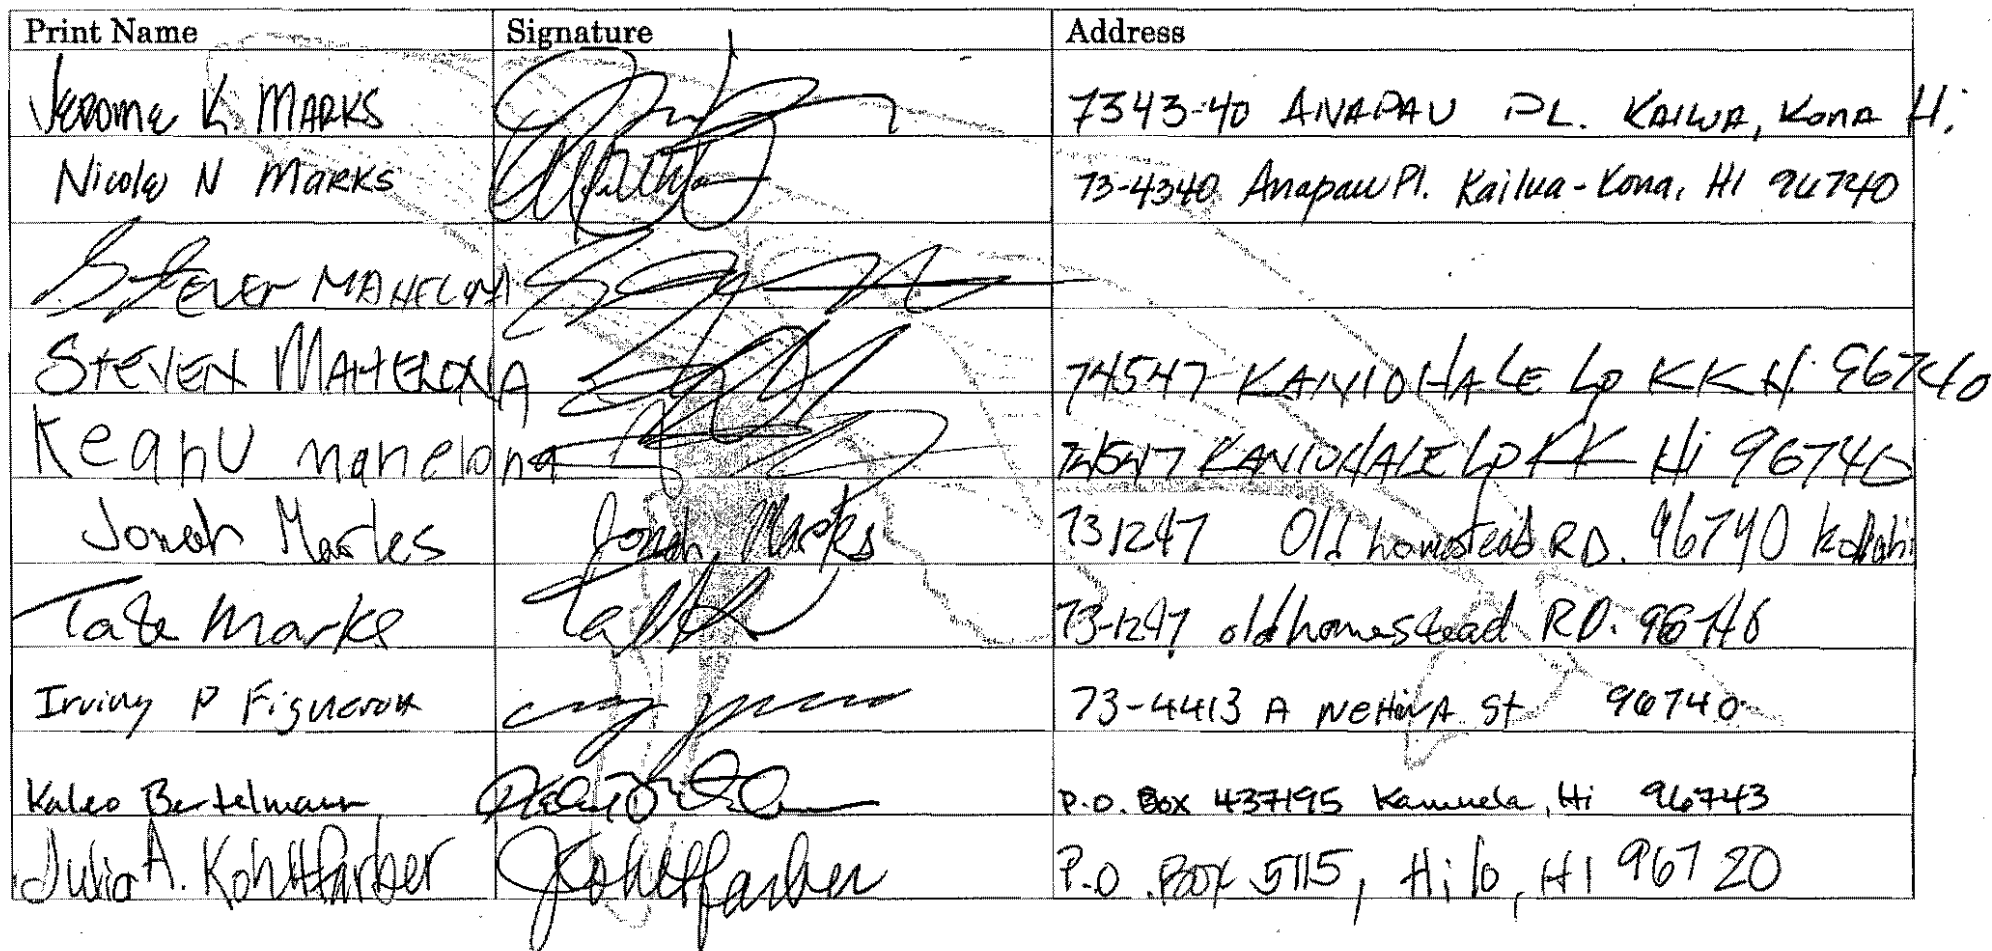 Print Name Signature Address
Jerome K. MARKS 7343-40 ANAPAU PL. KAILUA, KONA Hi
Nicole N MARKS 73-4340 Anapau Pl. Kailua-Kona, HI 96740
STEVEN MAHELONA
STEVEN MAHELONA 74547 KANIOHALE Lp KK Hi 96740
Keanu mahelona 74547 KANIOHALE LP KK Hi 96740
Jonah Marks Jonah Marks 731247 Old homestead RD. 96740
Tate Marks 73-1247 old homestead RD.
Irving P Figueroa 73-4413 A NEHIWA St 96740
Kaleo Bertelmann P.O. Box 437195 Kamuela, Hi 96743
Julia A. Kohltfarber JKohltfarber P.O. Box 5115, Hilo, HI 96720